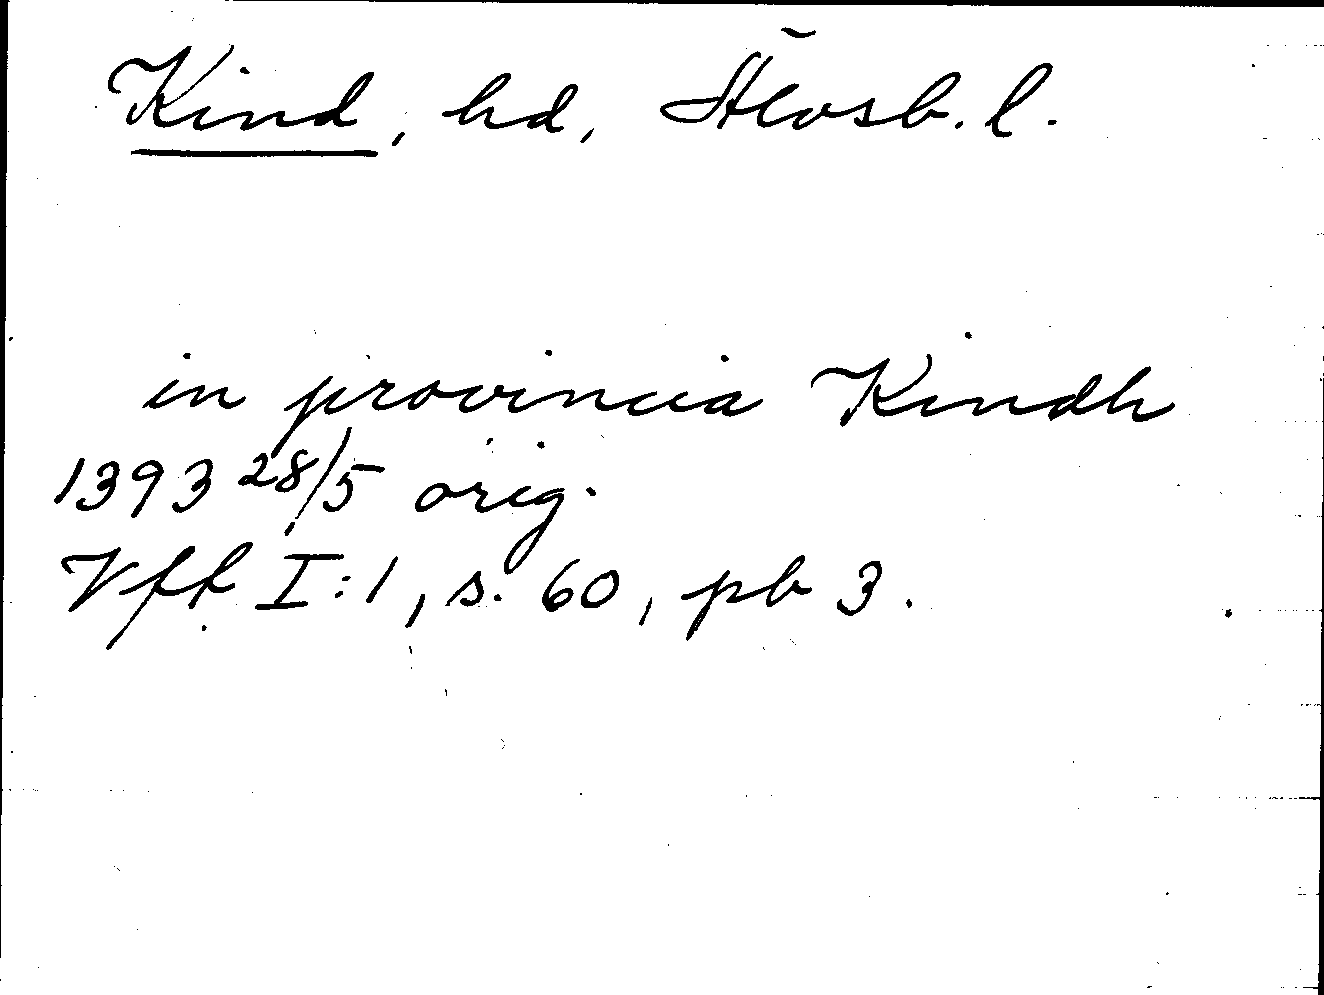 Kind, hd, Älvsb. l.
in provincia Kindh
1393 28/5 orig.
Vff I:1, s. 60, pb 3.